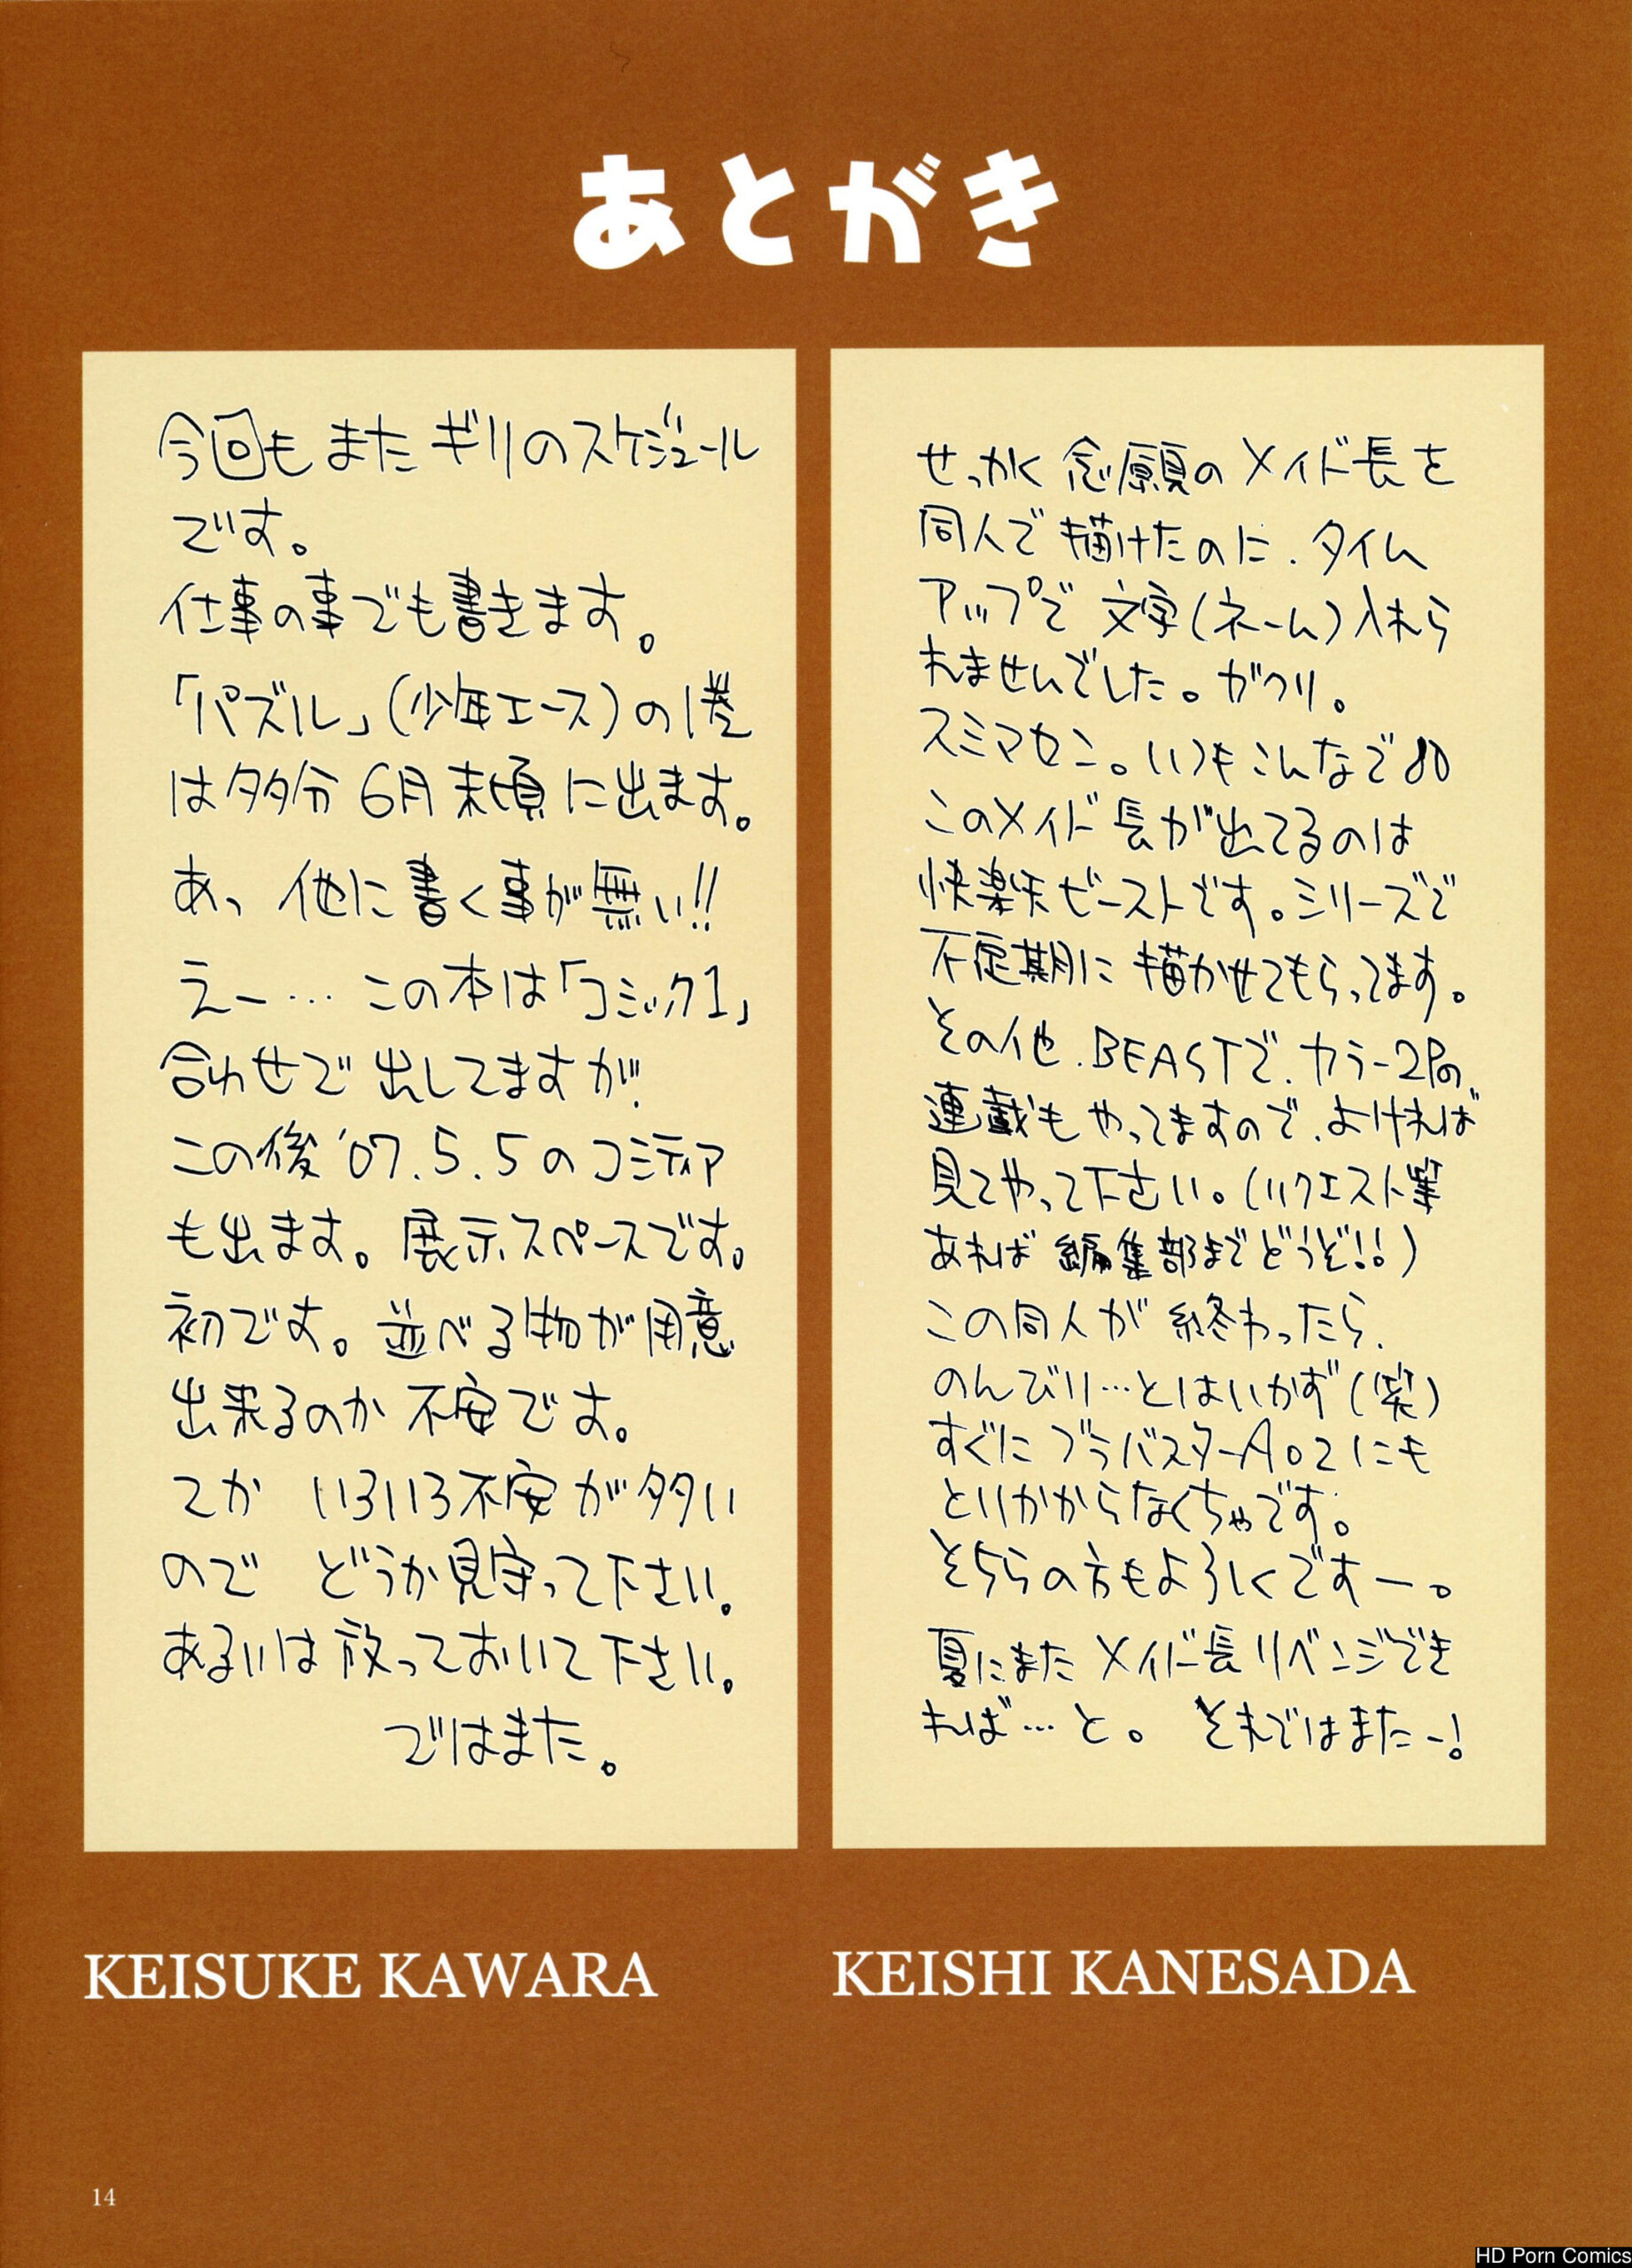 あとがき
今回もまたギリのスケジュール
です。
仕事の事でも書きます。
「パズル」(少年エース)の1巻
は多分6月末頃に出ます。
あ、他に書く事が無い!!
えー…この本は「コミック1」
合わせで出してますが、
この後'07.5.5のコミティア
も出ます。展示スペースです。
初です。並べる物が用意
出来るのか不安です。
てかいろいろ不安が多い
のでどうか見守って下さい。
あるいは放っておいて下さい。
ではまた。
KEISUKE KAWARA
せっかく念願のメイド長を
同人で描けたのに、タイム
アップで文字(ネーム)入れら
れませんでした。ガクリ。
スミマセン。いつもこんなで
このメイド長が出てるのは
快楽天ビーストです。シリーズで
不定期に描かせてもらってます。
その他、BEASTで、カラー2Pの、
連載もやってますので、よければ
見てやって下さい。(リクエスト等
あれば編集部までどうぞ!!)
この同人が終わったら、
のんびり…とはいかず(笑)
すぐにブラバスターA02にも
とりかからなくちゃです。
そちらの方もよろしくですー。
夏にまたメイド長リベンジでき
れば…と。それではまたー!
KEISHI KANESADA
14
HD Porn Comics